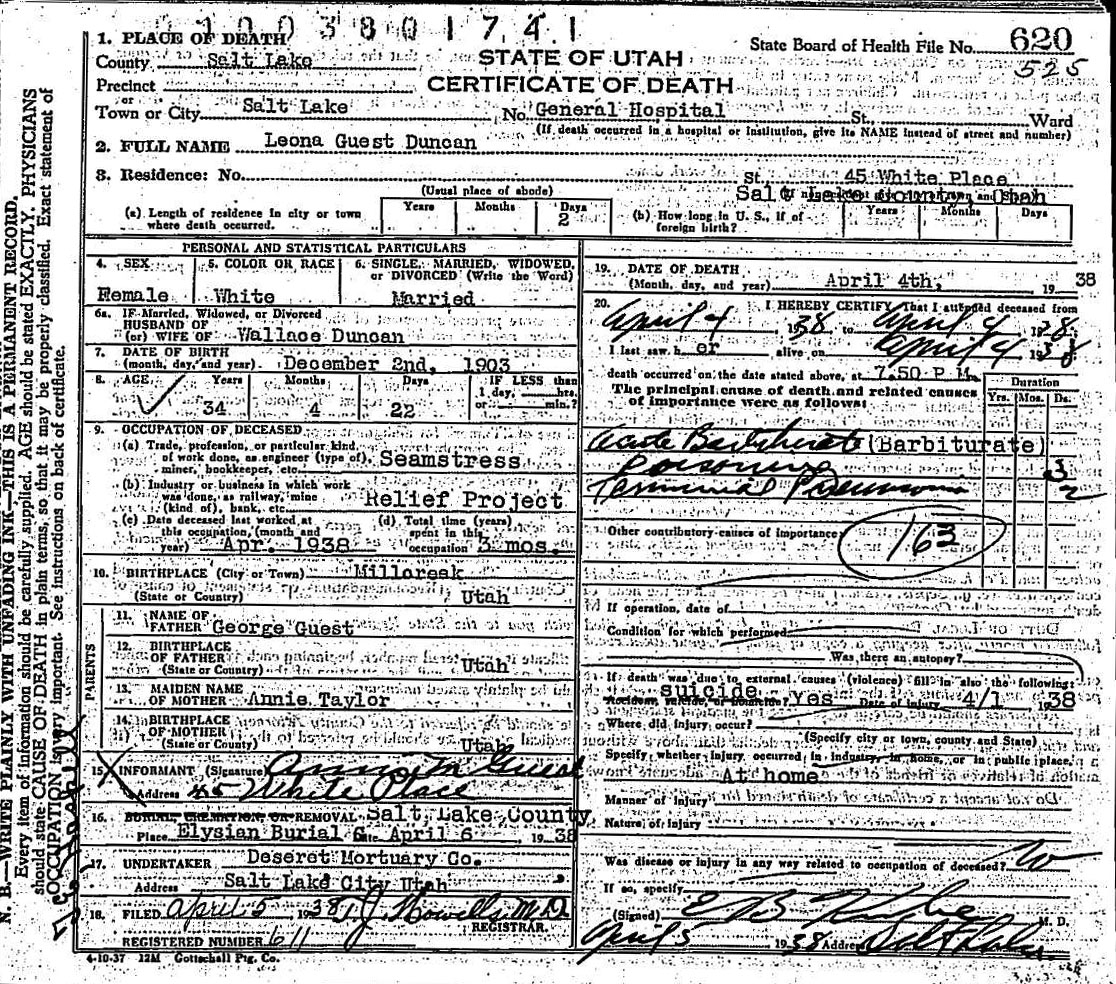 1003801741
1. PLACE OF DEATH
State Board of Health File No. 620
525
County Salt Lake
STATE OF UTAH
Precinct
CERTIFICATE OF DEATH
or
Town or City Salt Lake No. General Hospital St., Ward
(If death occurred in a hospital or institution, give its NAME instead of street and number)
2. FULL NAME Leona Guest Duncan
3. Residence: No. St. 45 White Place
(Usual place of abode) Salt Lake County, Utah
(a) Length of residence in city or town where death occurred. Years Months Days 2
(b) How long in U. S., if of foreign birth? Years Months Days
PERSONAL AND STATISTICAL PARTICULARS
4. SEX 5. COLOR OR RACE 6. SINGLE, MARRIED, WIDOWED, or DIVORCED (Write the Word)
Female White Married
6a. IF Married, Widowed, or Divorced
HUSBAND OF
(or) WIFE OF Wallace Duncan
7. DATE OF BIRTH
(month, day, and year) December 2nd, 1903
8. AGE Years Months Days IF LESS than
1 day, hrs.
or min.?
34 4 22
9. OCCUPATION OF DECEASED
(a) Trade, profession, or particular kind
of work done, as engineer (type of),
miner, bookkeeper, etc. Seamstress
(b) Industry or business in which work
was done, as railway, mine
(kind of), bank, etc. Relief Project
(c) Date deceased last worked at
this occupation, (month and
year) Apr. 1938
(d) Total time (years)
spent in this
occupation 3 mos.
10. BIRTHPLACE (City or Town) Millcreek
(State or Country) Utah
PARENTS
11. NAME OF
FATHER George Guest
12. BIRTHPLACE
OF FATHER
(State or Country) Utah
13. MAIDEN NAME
OF MOTHER Annie Taylor
14. BIRTHPLACE
OF MOTHER
(State or Country) Utah
15. INFORMANT (Signature) Annie M Guest
Address 45 White Place
16. BURIAL, CREMATION, OR REMOVAL Salt Lake County
Place Elysian Burial G Date April 6, 1938
17. UNDERTAKER Deseret Mortuary Co.
Address Salt Lake City Utah
18. FILED April 5 1938 T.J. Howells M.D.
REGISTRAR.
REGISTERED NUMBER 611
4-10-37 12M Gottschall Ptg. Co.
19. DATE OF DEATH
(Month, day, and year) April 4th, 1938
20. I HEREBY CERTIFY, That I attended deceased from
April 4, 1938, to April 4, 1938
I last saw her alive on April 4 1938
death occurred on the date stated above, at 7.50 P.M.
The principal cause of death and related causes
of importance were as follows:
Duration
Yrs. Mos. Ds.
Acute Barbiturate (Barbiturate)
Poisoning 3
Terminal Pneumonia 2
Other contributory causes of importance:
163
If operation, date of
Condition for which performed
Was there an autopsy?
If death was due to external causes (violence) fill in also the following:
suicide
Accident, suicide, or homicide? Yes Date of injury 4/1 1938
Where did injury occur?
(Specify city or town, county and State)
Specify whether injury occurred in industry, in home, or in public place.
At home
Manner of injury
Nature of injury
Was disease or injury in any way related to occupation of deceased? No
If so, specify
(Signed) M. D.
April 5 1938 Address Salt Lake
N. B.—WRITE PLAINLY WITH UNFADING INK—THIS IS A PERMANENT RECORD.
Every item of information should be carefully supplied. AGE should be stated EXACTLY. PHYSICIANS
should state CAUSE OF DEATH in plain terms, so that it may be properly classified. Exact statement of
OCCUPATION is very important. See instructions on back of certificate.